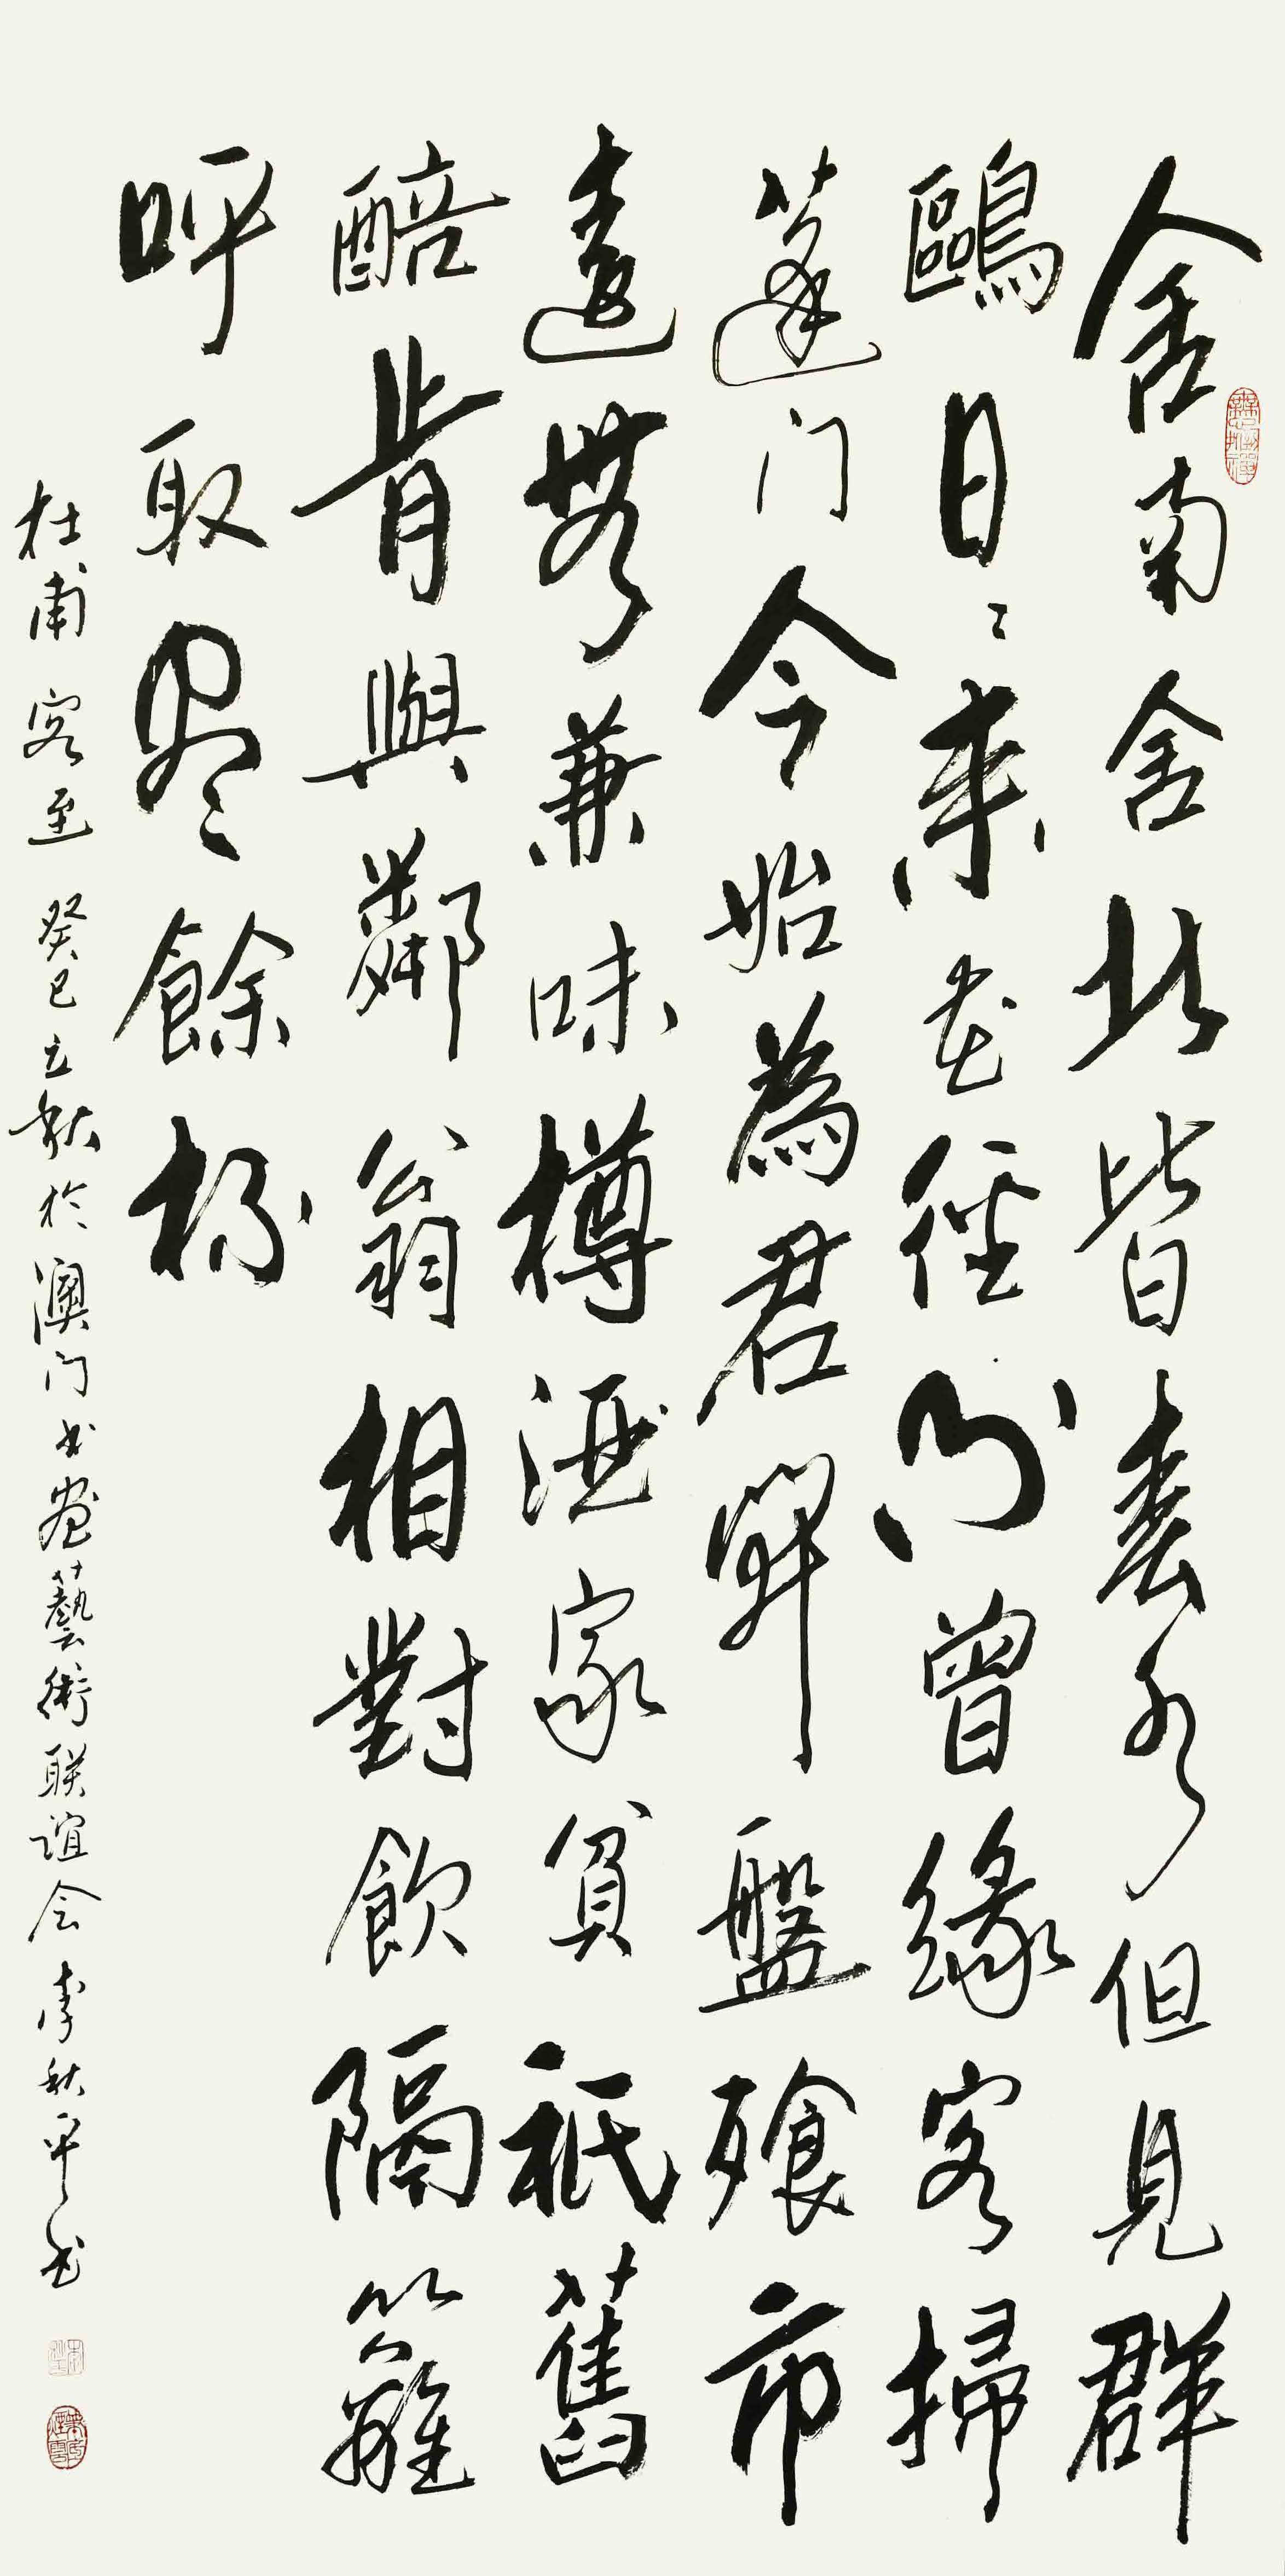 舍南舍北皆春水但見群
鷗日々來花徑不曾緣客掃
蓬门今始為君開盤飧市
遠無兼味樽酒家貧衹舊
醅肯與鄰翁相對飲隔籬
呼取盡餘杯
杜甫客至 癸巳立秋於澳门书畫藝術联谊会李秋平书